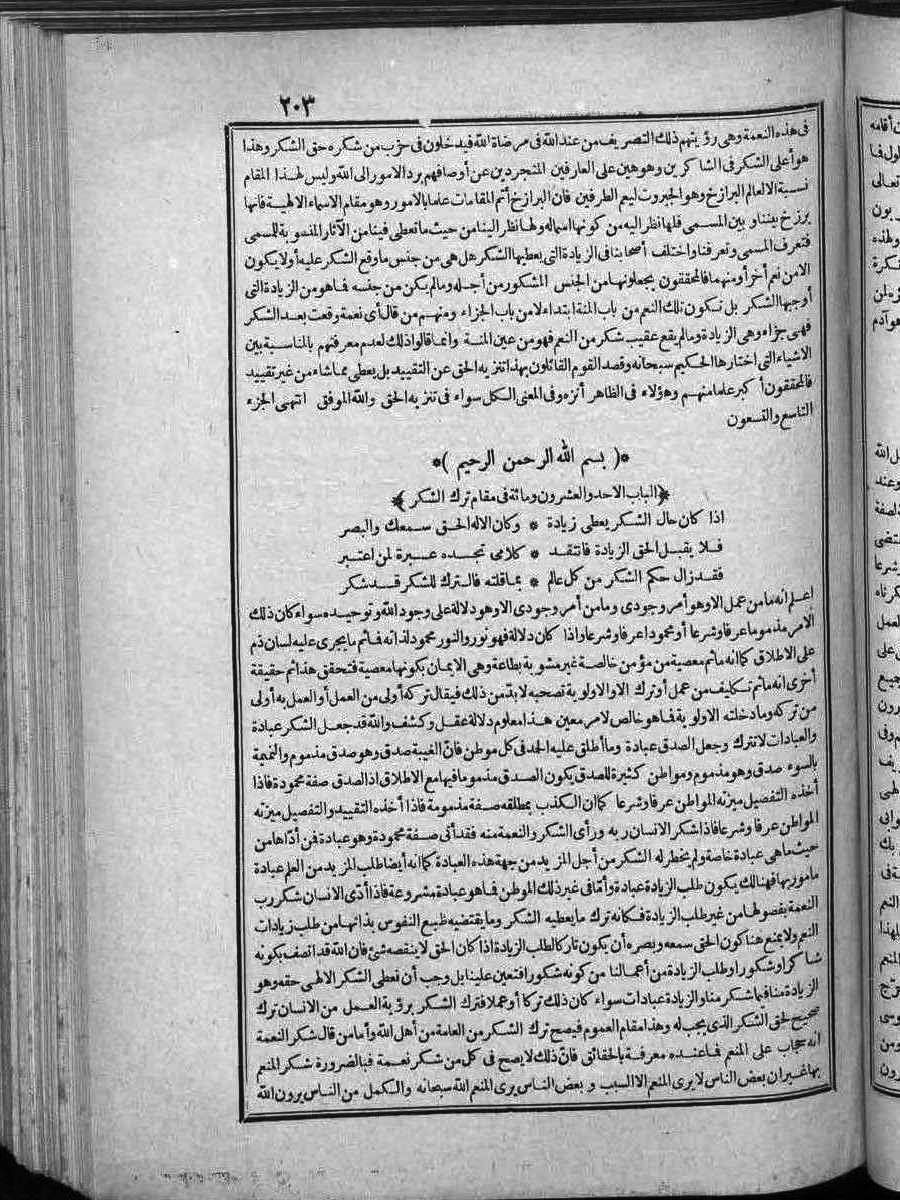 ٢٠٣
فى هذه النعمة وهى رؤيتهم ذلك التصريف من عند الله فى مرضاة الله فيدخلون فى حزب من شكره حق الشكر وهذا
هو أعلى الشكر فى الشاكرين وهو هين على العارفين المتجردين عن أوصافهم برد الامور الى الله وليس لهذا المقام
نسبة الا لعالم البرازخ وهو الجبروت ليعم الطرفين فان البرازخ أتم المقامات علما بالامور وهو مقام الاسماء الالهية فانها
برزخ بيننا وبين المسمى فلها نظر اليه من كونها اسماله ولها نظر الينا من حيث ما تعطى فينا من الآثار المنسوبة للمسمى
فتعرف المسمى وتعرفنا واختلف أصحابنا فى الزيادة التى يعطيها الشكر هل هى من جنس ما وقع الشكر عليه أولا يكون
الا من نعم أخر أو منهما فالمحققون يجعلونها من الجنس المشكور من أجله وما لم يكن من جنسه فما هو من الزيادة التى
أوجبها الشكر بل تكون تلك النعم من باب المنة ابتداء لا من باب الجزاء ومنهم من قال أى نعمة وقعت بعد الشكر
فهى جزاء وهى الزيادة وما لم يقع عقيب شكر من النعم فهو من عين المنة وانما قالوا ذلك لعدم معرفتهم بالمناسبة بين
الاشياء التى اختارها الحكيم سبحانه وقصد القوم القائلون بهذا تنزيه الحق عن التقييد بل يعطى ما شاء من غير تقييد
فالمحققون أكبر علما منهم وهؤلاء فى الظاهر أنزه وفى المعنى الكل سواء فى تنزيه الحق والله الموفق انتهى الجزء
التاسع والتسعون
*( بسم الله الرحمن الرحيم )*
﴿الباب الاحد والعشرون ومائة فى مقام ترك الشكر﴾
اذا كان حال الشكر يعطى زيادة * وكان الاله الحق سمعك والبصر
فلا يقبل الحق الزيادة فاتئد * كلامى تجده عبرة لمن اعتبر
فقد زال حكم الشكر من كل عالم * بما قلته فالترك للشكر قد شكر
اعلم انه ما من عمل الا وهو أمر وجودى وما من أمر وجودى الا وهو دلالة على وجود الله وتوحيده سواء كان ذلك
الامر مذموما عرفا وشرعا أو محمودا عرفا وشرعا واذا كان دلالة فهو نور والنور محمود لذاته فما ثم ما يجرى عليه لسان ذم
على الاطلاق كما انه ما ثم معصية من مؤمن خالصة غير مشوبة بطاعة وهى الايمان بكونها معصية فتحقق هذا ثم حقيقة
أخرى انه ما ثم تكليف من عمل أو ترك الا والاولوية تصحبه لا بد من ذلك فيقال تركه أولى من العمل أو العمل به أولى
من تركه وما دخلته الاولوية فما هو خالص لامر معين هذا معلوم دلالة عقل وكشف والله قد جعل الشكر عبادة
والعبادات لا تترك وجعل الصدق عبادة وما أطلق عليه الحمد فى كل موطن فان الغيبة صدق وهو صدق مذموم والنميمة
بالسوء صدق وهو مذموم ومواطن كثيرة للصدق يكون الصدق مذموما فيها مع الاطلاق اذ الصدق صفة محمودة فاذا
أخذه التفصيل ميزته المواطن عرفا وشرعا كما ان الكذب بمطلقه صفة مذمومة فاذا أخذه التقييد والتفصيل ميزته
المواطن عرفا وشرعا فاذا شكر الانسان ربه ورأى الشكر والنعمة منه فقد أتى صفة محمودة وهو عبادة فمن أداها من
حيث ما هى عبادة خاصة ولم يخطر له الشكر من أجل المزيد من جهة هذه العبادة كما انه أيضا طلب المزيد من العلم عبادة
مأمور بها فهنالك يكون طلب الزيادة عبادة وأما فى غير ذلك الموطن فما هو عبادة مشروعة فاذا أدى الانسان شكر رب
النعمة بفصولها من غير طلب الزيادة فكانه ترك ما يعطيه الشكر وما يقتضيه طبع النفوس بذاتها من طلب زيادات
النعم ولا يمنع هنا كون الحق سمعه وبصره أن يكون تاركا لطلب الزيادة اذا كان الحق لا ينقصه شئ فان الله قد اتصف بكونه
شاكرا وشكورا وطلب الزيادة من أعمالنا من كونه شكورا فتعين علينا بل وجب أن نعطى الشكر الالهى حقه وهو
الزيادة منا فيما شكر منا والزيادة عبادات سواء كان ذلك تركا أو عملا فترك الشكر برؤية العمل من الانسان ترك
صحيح لحق الشكر الذى يجب له وهذا مقام العموم فيصح ترك الشكر من العامة من أهل الله وأما من قال شكر النعمة
انه حجاب على المنعم فما عنده معرفة بالحقائق فان ذلك لا يصح فى كل من شكر نعمة فبالضرورة شكر المنعم
بها غير ان بعض الناس لا يرى المنعم الا السبب و بعض الناس يرى المنعم الله سبحانه والكمل من الناس يرون الله